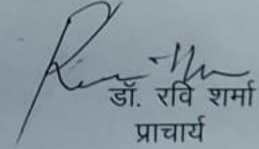 डॉ. रवि शर्मा
प्राचार्य